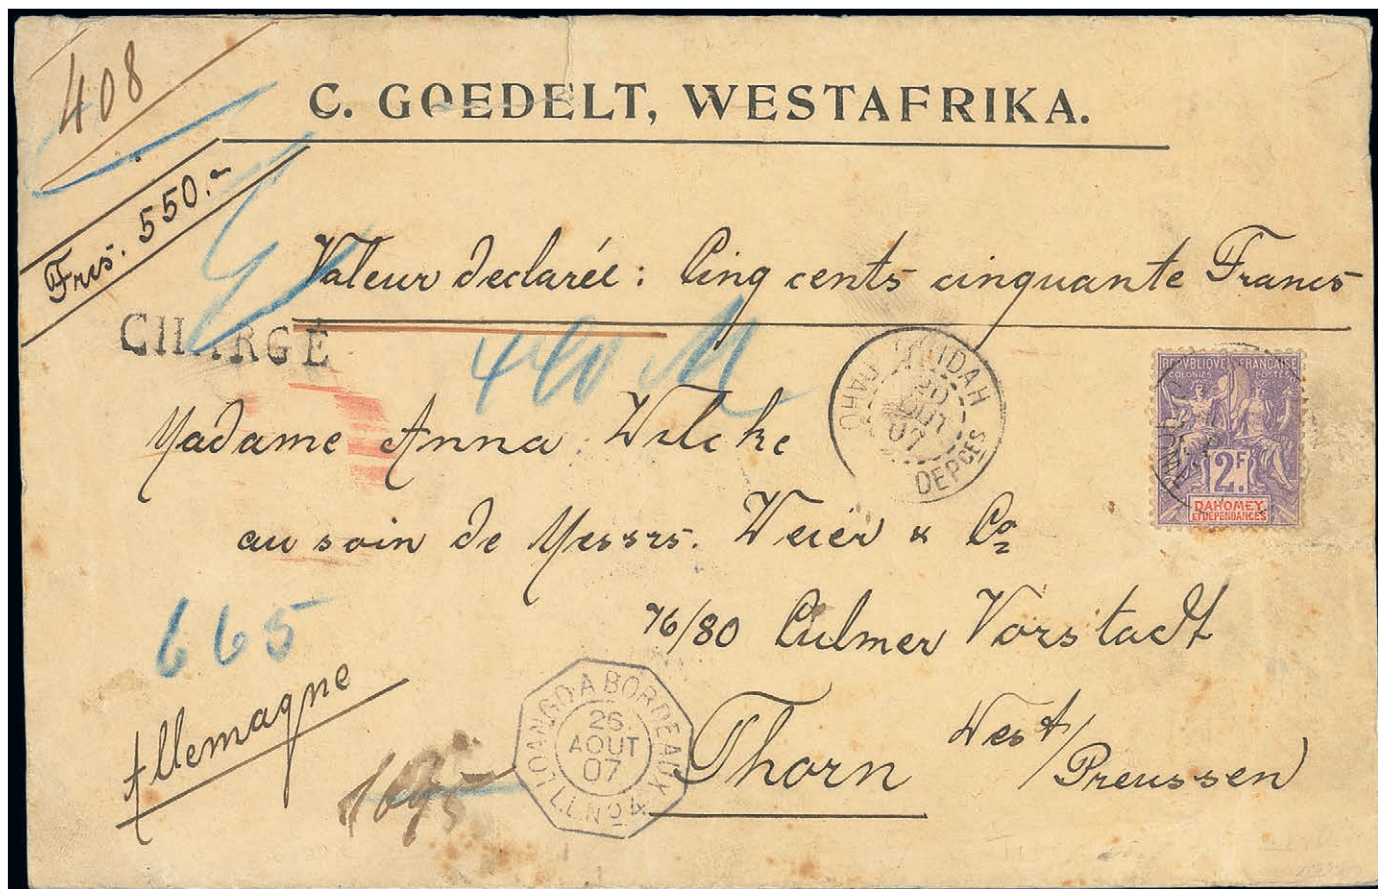 408
C. GOEDELT, WESTAFRIKA.
Frcs. 550.-
Valeur declarée: Cinq cents cinquante Francs
CHARGÉ
440 M
OUIDAH
DAHOMEY
20
AOUT
07
DEPCES
REPUBLIQUE FRANÇAISE
COLONIES POSTES
2F.
DAHOMEY
ET DEPENDANCES
Madame Anna Wilcke
au soin de Messrs. Weier & Co
76/80 Culmer Vorstadt
665
Allemagne
LOANGO A BORDEAUX
26
AOUT
07
L.L. No 4
Thorn West/Preussen
1695